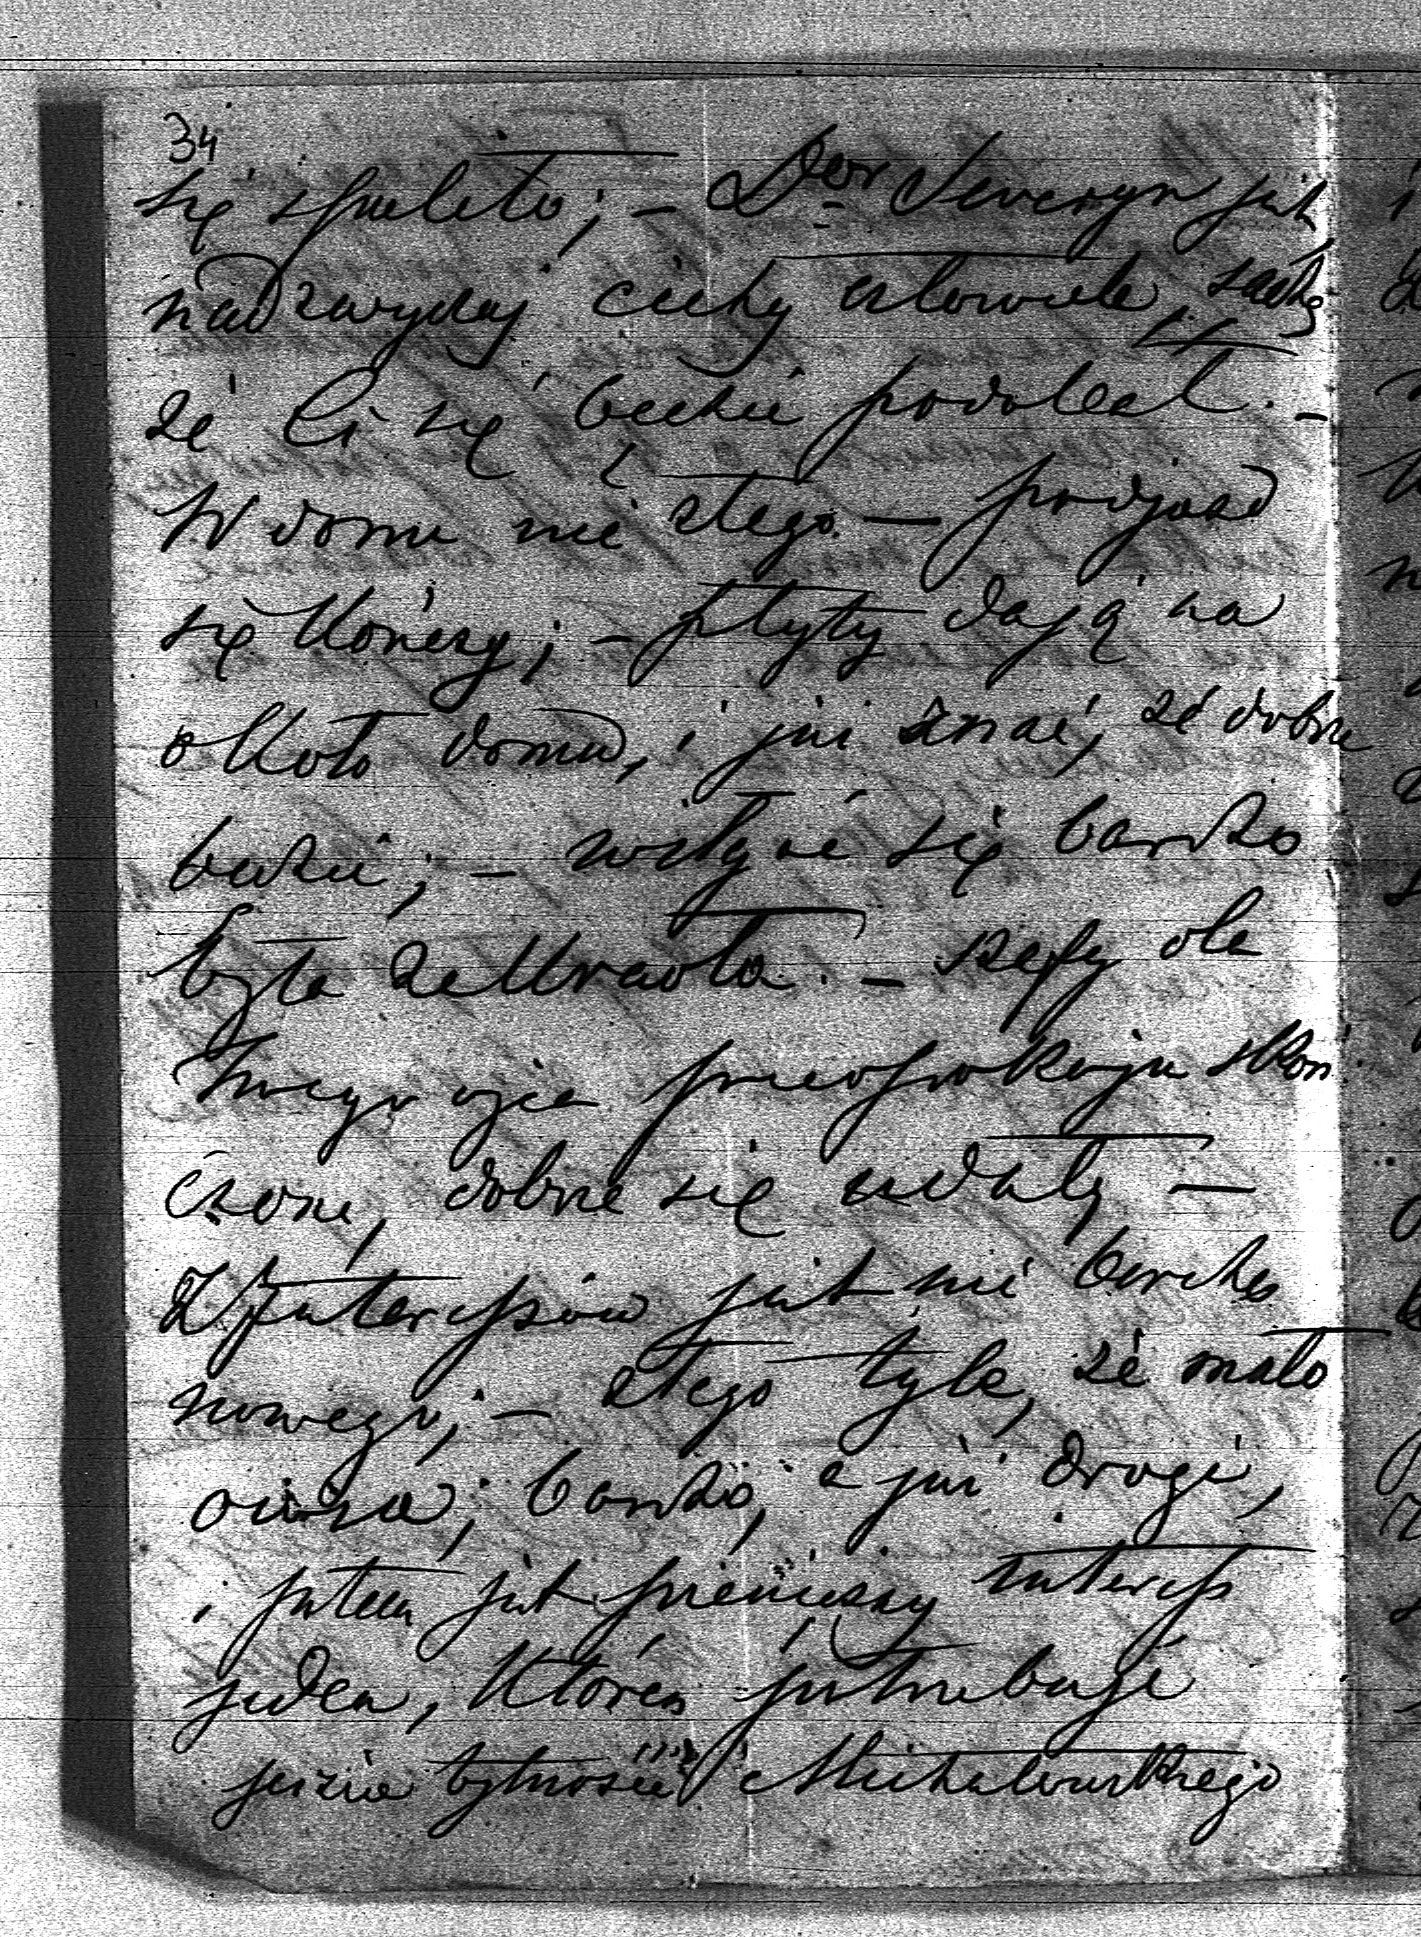 34
się spaliło; – Dor Seweryn jest
nadzwyczaj cichy człowiek, sądzę
że Ci się będzie podobał. –
W domu nic złego – podjazd
się kończy; – płyty dają na
około domu, i już znać, że dobrze
będzie; – wilgoć się bardzo
była zakradła. – szafy dla
Twego ojca przedpokoju skoń
czone, dobrze się udały –
Z Interessów jest nie bardzo
nowego; – złego tyle, że mało
owsa; bardzo, a już drogi,
i potem jest pieniężny interess
jeden, któren potrzebuje
jeszcze bytności Michałowskiego